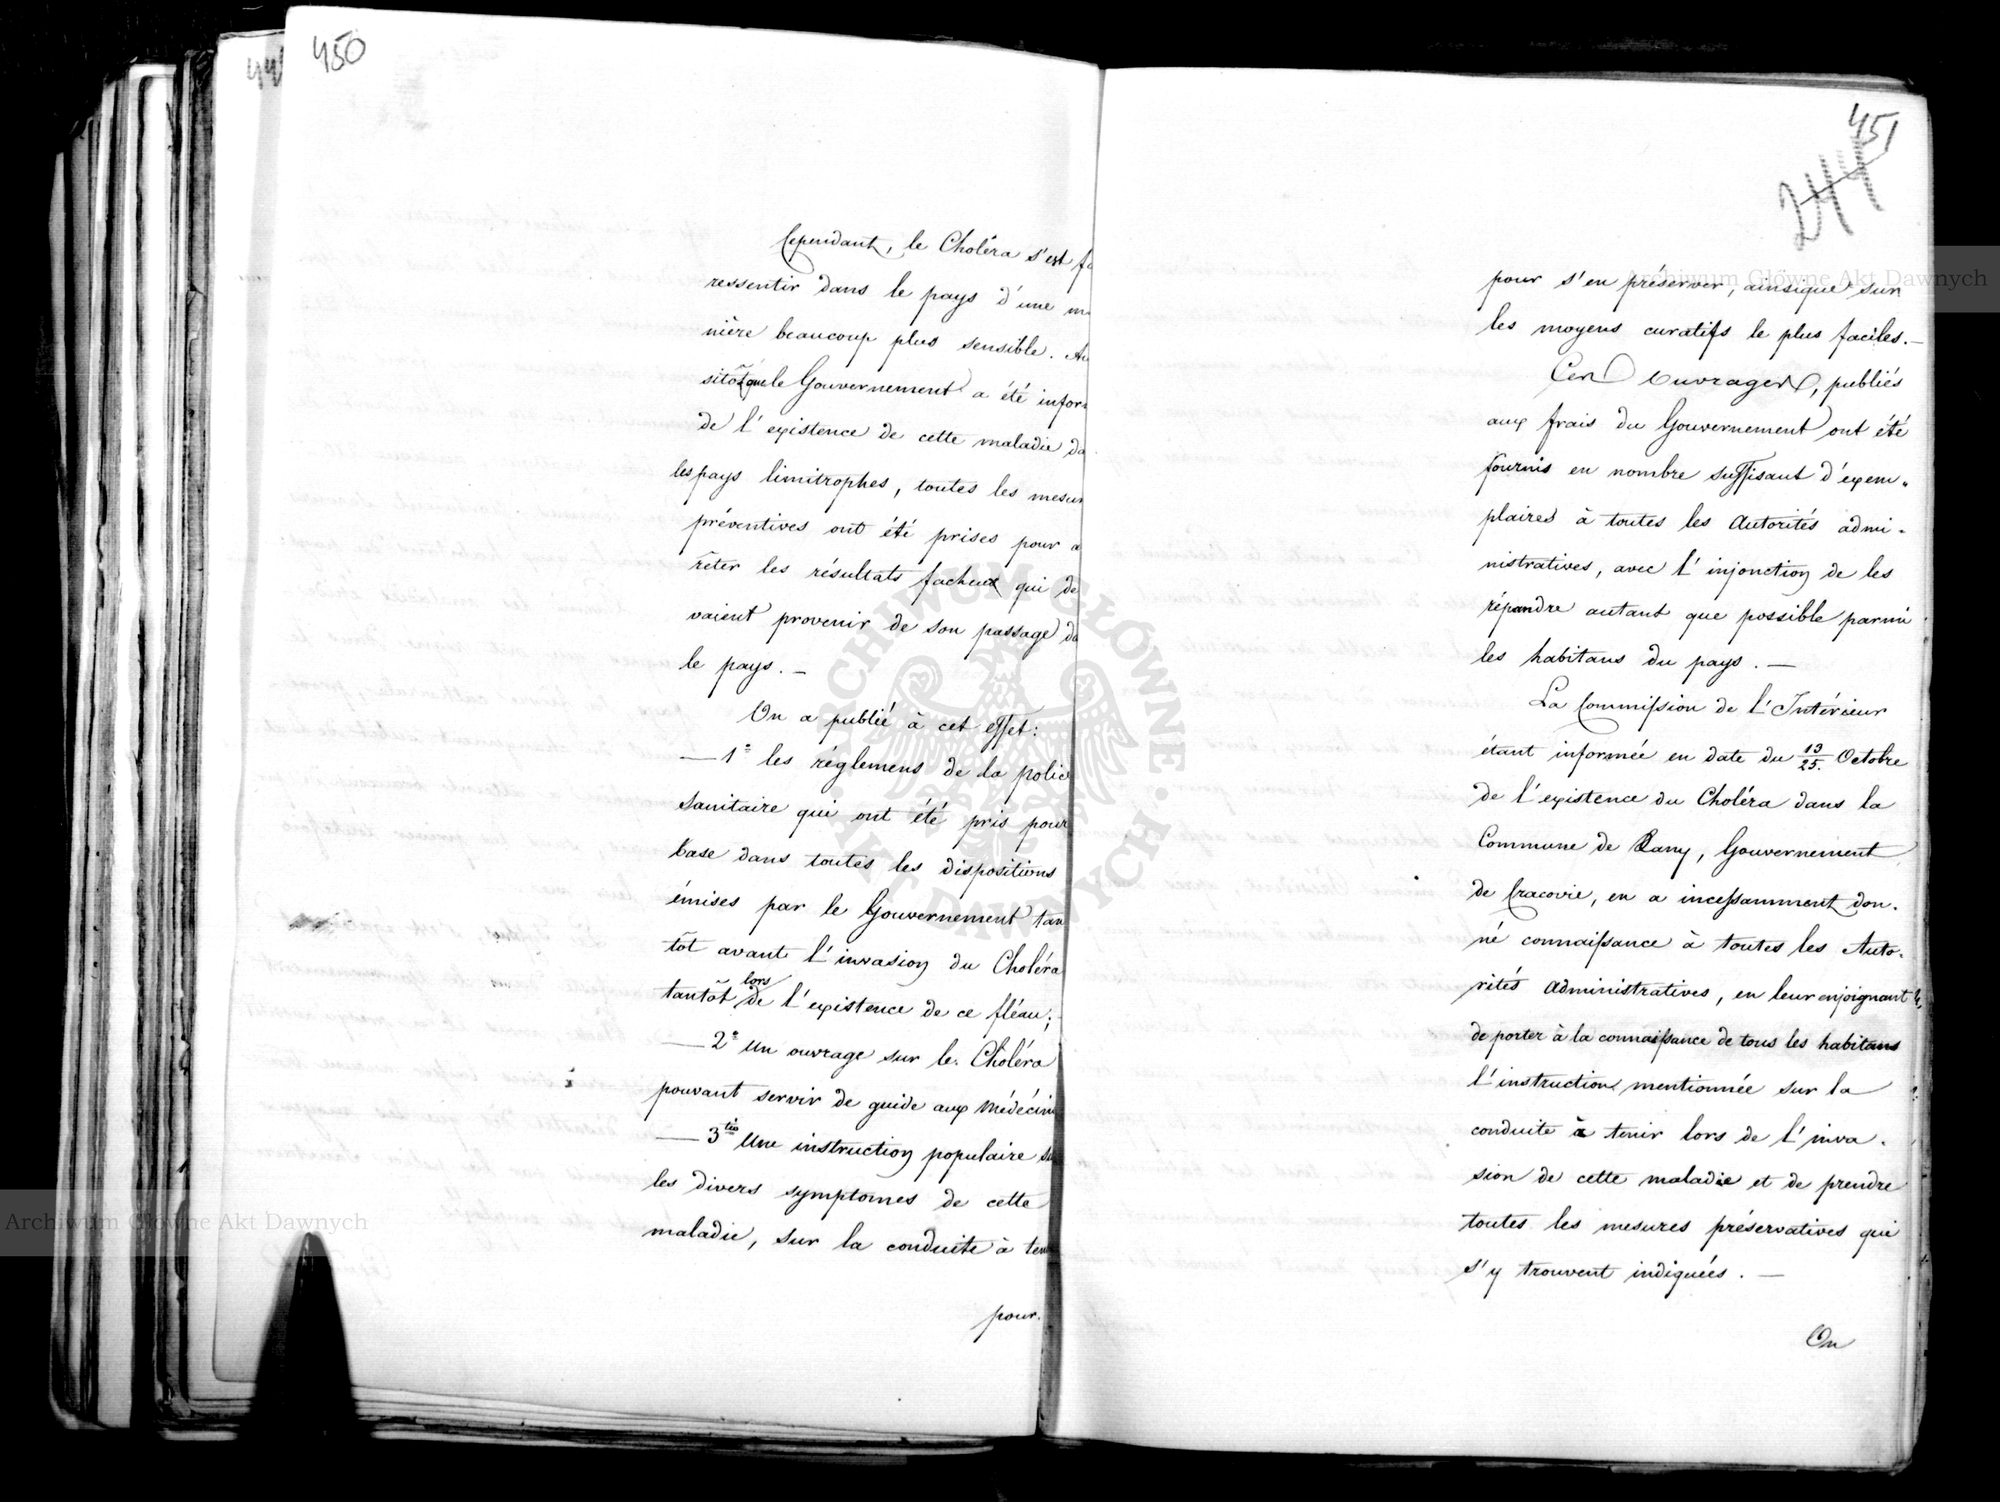 450
Cependant, le Choléra s'est fa
ressentir dans le pays d'une ma
nière beaucoup plus sensible. Au
sitôt que le Gouvernement a été infor
de l'existence de cette maladie da
les pays limitrophes, toutes les mesur
préventives ont été prises pour a
rêter les résultats facheux qui de
vaient provenir de son passage da
le pays. —
On a publié à cet effet:
— 1° les réglemens de la police
sanitaire qui ont été pris pour
base dans toutes les dispositions
émises par le Gouvernement tan
tôt avant l'invasion du Choléra
tantôt lors de l'existence de ce fléau;
— 2° Un ouvrage sur le Choléra
pouvant servir de guide aux Médécins
— 3tio Une instruction populaire su
les divers symptomes de cette
maladie, sur la conduite à ten
pour.
451
244
pour s'en préserver, ainsique sur
les moyens curatifs le plus faciles. —
Ces Ouvrages, publiés
aux frais du Gouvernement ont été
fournis en nombre suffisant d'éxem-
plaires à toutes les Autorités admi-
nistratives, avec l'injonction de les
répandre autant que possible parmi
les habitans du pays. —
La Commission de l'Intérieur
étant informée en date du 13/25. Octobre
de l'existence du Choléra dans la
Commune de Rany, Gouvernement
de Cracovie, en a incessamment don-
né connaissance à toutes les Auto-
rités Administratives, en leur enjoignant
de porter à la connaissance de tous les habitans
l'instruction mentionnée sur la
conduite à tenir lors de l'inva-
sion de cette maladie et de prendre
toutes les mesures préservatives qui
s'y trouvent indiquées. —
On
Archiwum Główne Akt Dawnych
Archiwum Główne Akt Dawnych
ARCHIWUM GŁÓWNE AKT DAWNYCH